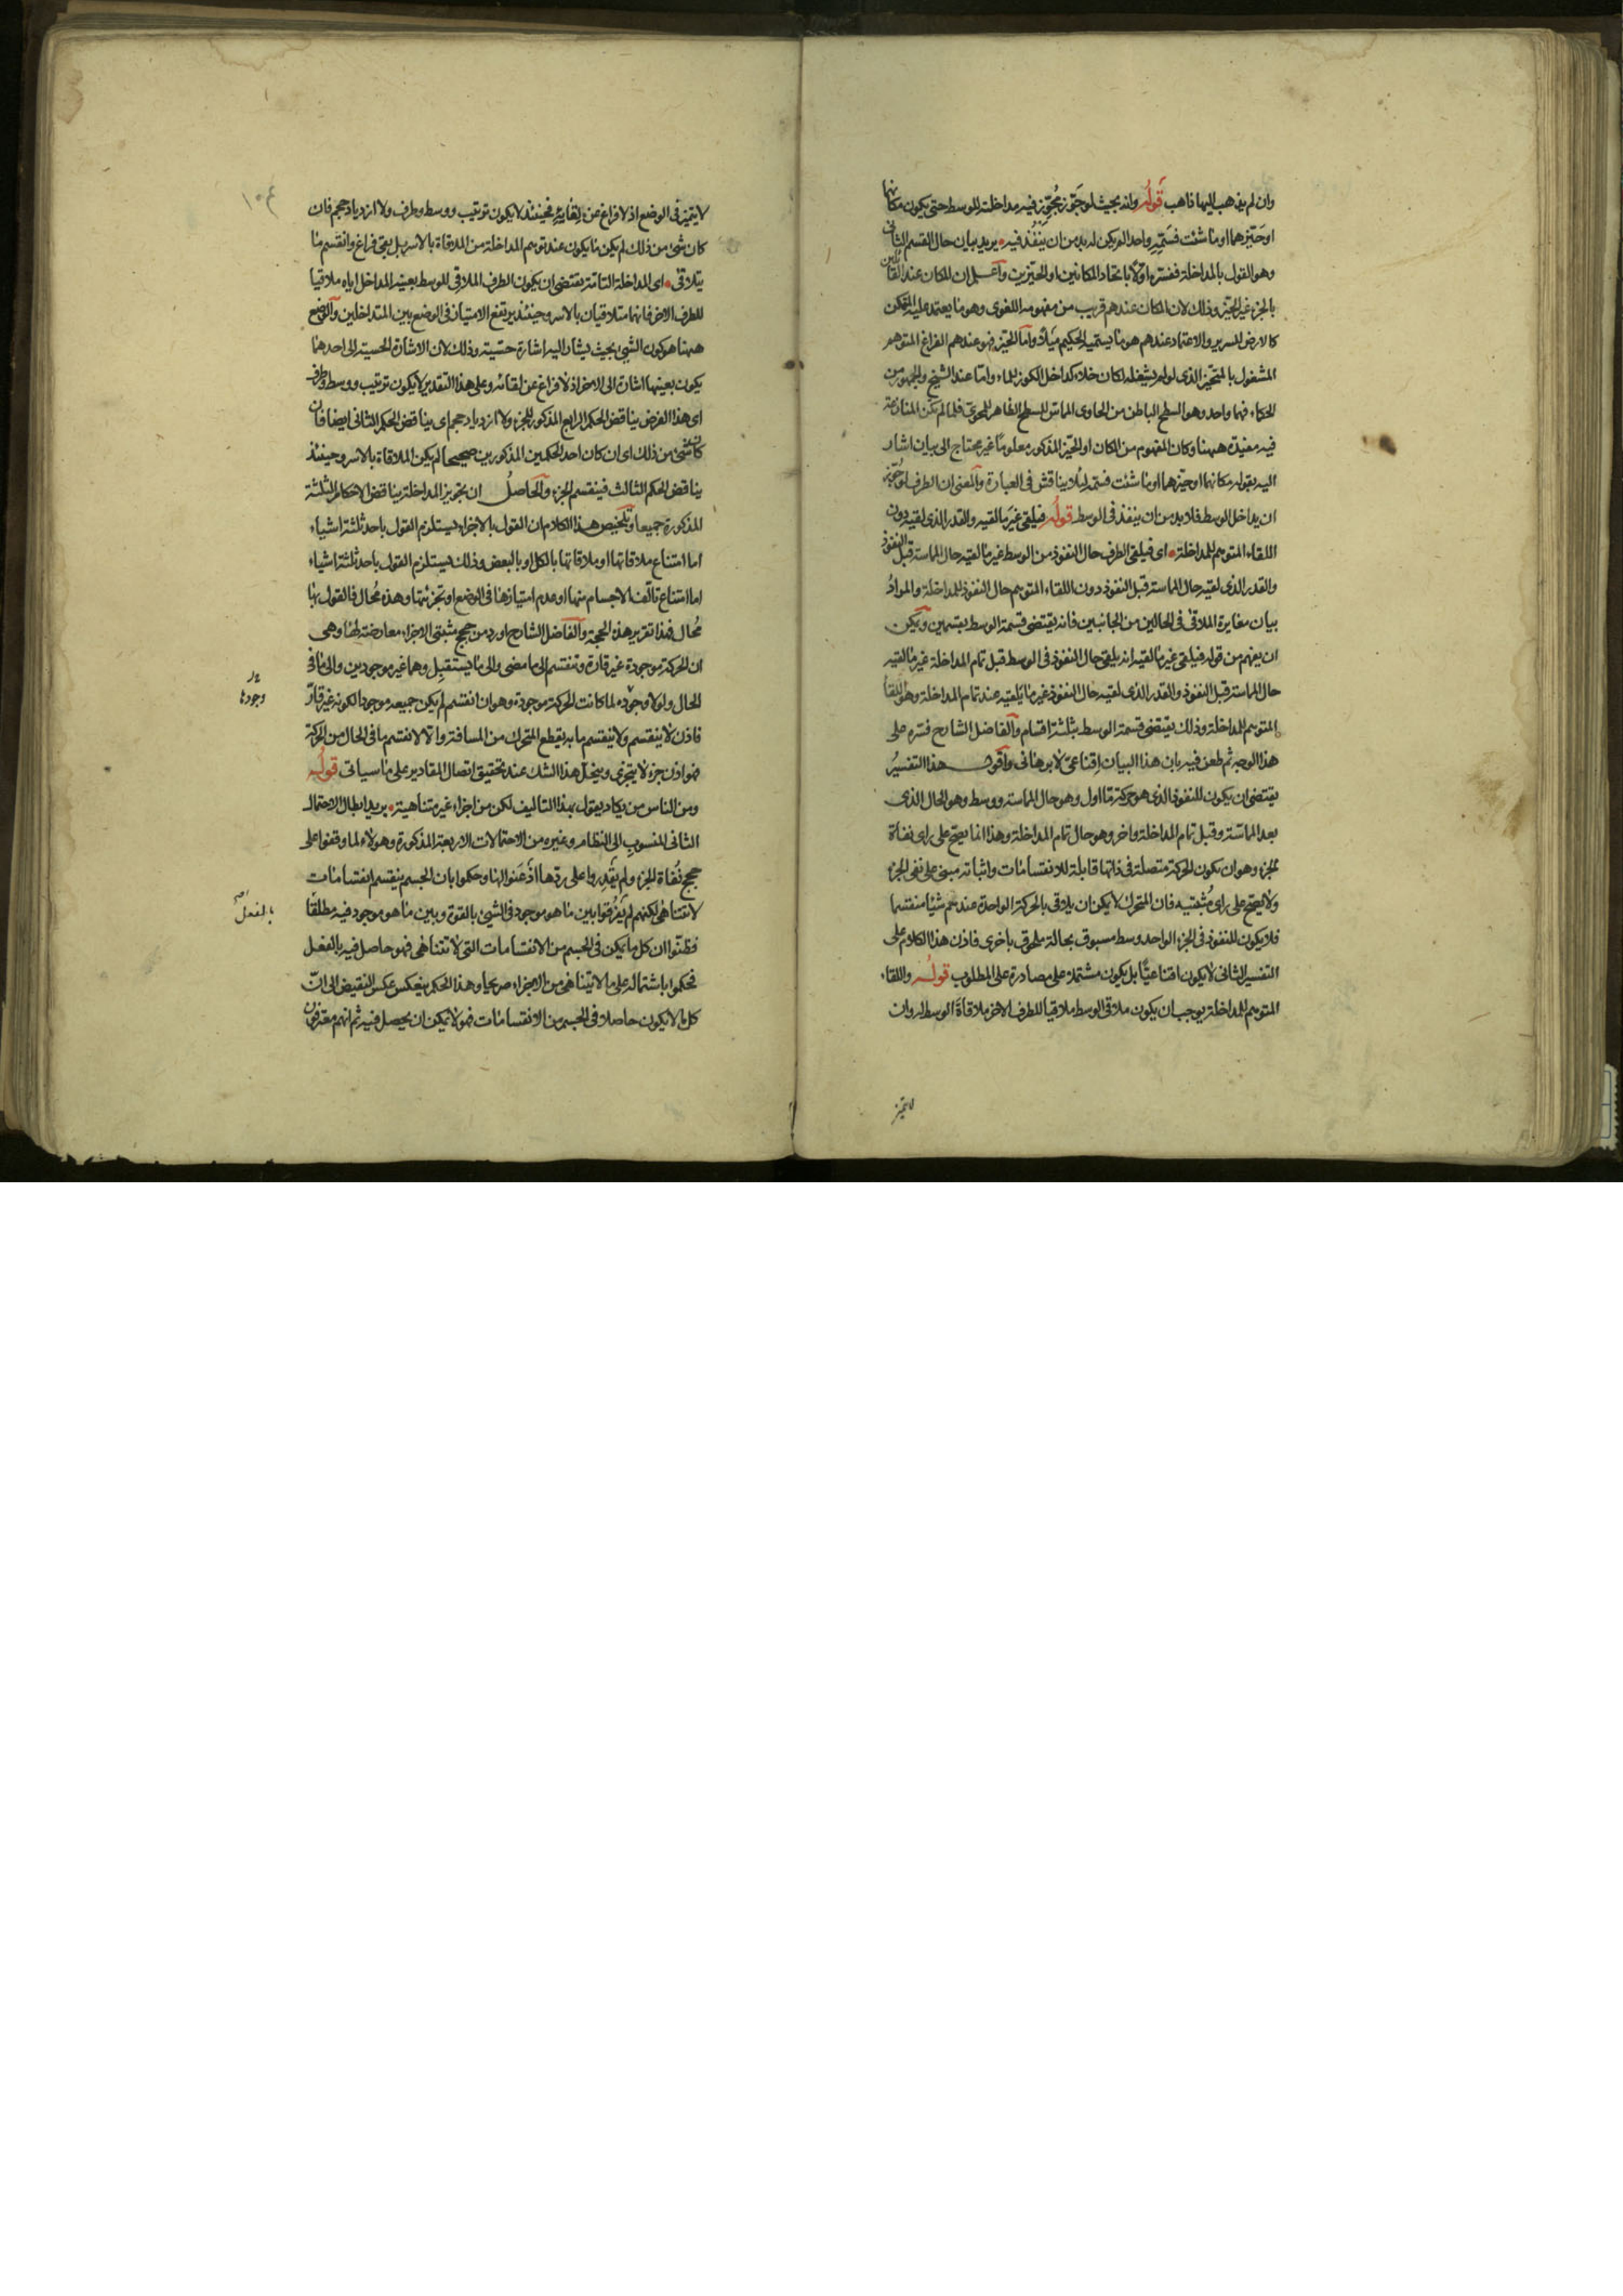 وان لم يذهب اليها ذاهب قوله وانه بحيث لو جوّز مجوّز فيه مداخلة للوسط حتى يكون مكانهما
او حيّزهما او ما شئت فسمّه واحدا لم يكن له بد من ان ينفذ فيه يريد بيان حال القسم الثانى
وهو القول بالمداخلة ففسره اولا باتحاد المكانين او الحيزين واعلم ان المكان عند القائلين
بالجزء غير الحيز وذلك لان المكان عندهم قريب من مفهومه اللغوى وهو ما يعتمد عليه المتمكن
كالارض للسرير والاعتماد عندهم هو ما يسميه الحكيم ميلا واما الحيز فهو عندهم الفراغ المتوهم
المشغول بالمتحيز الذى لو لم يشغله لكان خلاء كداخل الكوز للماء واما عند الشيخ والجمهور من
الحكماء فهما واحد وهو السطح الباطن من الحاوى المماس للسطح الظاهر للمحوىّ فلما لم تكن المنازعة
فيه مفيدة ههنا وكان المفهوم من المكان او الحيز المذكور معلوما غير محتاج الى بيان اشار
اليه بقوله مكانهما او حيزهما او ما شئت فسمه لئلا يناقش فى العبارة والمعنى ان الطرف لو جوّز
ان يداخل الوسط فلا بد من ان ينفذ فى الوسط قوله فيلقى غير ما لقيه والقدر الذى لقيه دون
اللقاء المتوهم للمداخلة اى فيلقى الطرف حال النفوذ من الوسط غير ما لقيه حال المماسة قبل النفوذ
والقدر الذى لقيه حال المماسة قبل النفوذ دون اللقاء المتوهم حال النفوذ للمداخلة والمراد
بيان مغايرة الملاقى فى الحالين من الجانبين فانه يقتضى قسمة الوسط بقسمين ويمكن
ان يفهم من قوله فيلقى غير ما لقيه انه يلقى حال النفوذ فى الوسط قبل تمام المداخلة غير ما لقيه
حال المماسة قبل النفوذ والقدر الذى لقيه حال النفوذ غير ما يلقيه عند تمام المداخلة وهو اللقاء
المتوهم للمداخلة وذلك يقتضى قسمة الوسط بثلثة اقسام والفاضل الشارح فسره على
هذا الوجه ثم طعن فيه بان هذا البيان اقناعىّ لا برهانى واقول هذا التفسير
يقتضى ان يكون للنفوذ الذى هو حركة ما اول وهو حال المماسة ووسط وهو الحال الذى
بعد المماسّة وقبل تمام المداخلة واخر وهو حال تمام المداخلة وهذا انما يصح على راى نفاة
الجزء وهو ان تكون الحركة متصلة فى ذاتها قابلة للانقسامات واثباته مبنى على نفى الجزء
ولا يصح على راى مُثبتيه فان المتحرك لا يمكن ان يلاقى بالحركة الواحدة عندهم شيئا منقسما
فلا يكون للنفوذ فى الجزء الواحد وسط مسبوق بحالة ملحوق باخرى فاذن هذا الكلام على
التفسير الثانى لا يكون اقناعيّا بل يكون مشتملا على مصادرة على المطلوب قوله واللقاء
المتوهم للمداخلة يوجب ان يكون ملاقى الوسط ملاقيا للطرف الاخر ملاقاة الوسط له وان
لا يتميز
١٠٤
لا يتميز فى الوضع اذ لا فراغ عن لقائه فحينئذ لا يكون ترتيب ووسط وطرف ولا ازدياد حجم فان
كان شئ من ذلك لم يكن ما يكون عند توهم المداخلة من الملاقاة بالاسر بل بقى فراغ وانقسم ما
يتلاقى اى المداخلة التامة يقتضى ان يكون الطرف الملاقى للوسط بعينه المداخل اياه ملاقيا
للطرف الاخر فانهما متلاقيان بالاسر وحينئذ يرتفع الامتياز فى الوضع بين المتداخلين والوضع
ههنا هو كون الشئ بحيث يشار اليه اشارة حسّية وذلك لان الاشارة الحسية الى احدهما
يكون بعينها اشارة الى الاخر اذ لا فراغ عن لقائه وعلى هذا التقدير لا يكون ترتيب ووسط وطرف
اى هذا الفرض يناقض الحكم الرابع المذكور للجزء ولا ازدياد حجم اى يناقض الحكم الثانى ايضا فان
كان شئ من ذلك اى ان كان احد الحكمين المذكورين صحيحا لم يكن الملاقاة بالاسر وحينئذ
يناقض الحكم الثالث فينقسم الجزء والحاصل ان تجويز المداخلة يناقض الاحكام الثلثة
المذكورة جميعا وتلخيص هذا الكلام ان القول بالاجزاء يستلزم القول باحد ثلثة اشياء
اما امتناع ملاقاتها او ملاقاتها بالكل او بالبعض وذلك يستلزم القول باحد ثلثة اشياء
اما امتناع تألّف الاجسام منها او عدم امتيازها فى الوضع او تجزئتها وهذه محال فالقول بها
محال فهذا تقرير هذه الحجة والفاضل الشارح اورد من حجج مثبتى الاجزاء معارضة لها وهى
ان الحركة موجودة غير قارة وتنقسم الى ما مضى والى ما يستقبل وهما غير موجودين والى ما فى
الحال ولولا وجوده لما كانت الحركة موجودة وهو ان انقسم لم يكن جميعه موجودا لكونه غير قارّ
فاذن لا ينقسم ولا ينقسم ما به يقطع المتحرك من المسافة والا لانقسم ما فى الحال من الحركة
فهو اذن جزء لا يتجزى وينحلّ هذا الشك عند تحقيق اتصال المقادير على ما سياتى قوله
ومن الناس من يكاد يقول بهذا التاليف لكن من اجزاء غير متناهية يريد ابطال الاحتمال
الثانى المنسوب الى النظام وغيره من الاحتمالات الاربعة المذكورة وهولاء لما وقفوا على
حجج نُفاة الجزء ولم يقدروا على ردّها اذعنوا لها وحكموا بان الجسم ينقسم انقسامات
لا تتناهى لكنهم لم يفرقوا بين ما هو موجود فى الشئ بالقوة وبين ما هو موجود فيه مطلقا
فظنّوا ان كل ما يمكن فى الجسم من الانقسامات التى لا تتناهى فهو حاصل فيه بالفعل
فحكموا باشتماله على ما لا يتناهى من الاجزاء صريحا وهذا الحكم ينعكس عكس النقيض الى انّ
كل ما لا يكون حاصلا فى الجسم من الانقسامات فهو لا يمكن ان يحصل فيه ثم انهم معترفون
وجودها
بالفعل